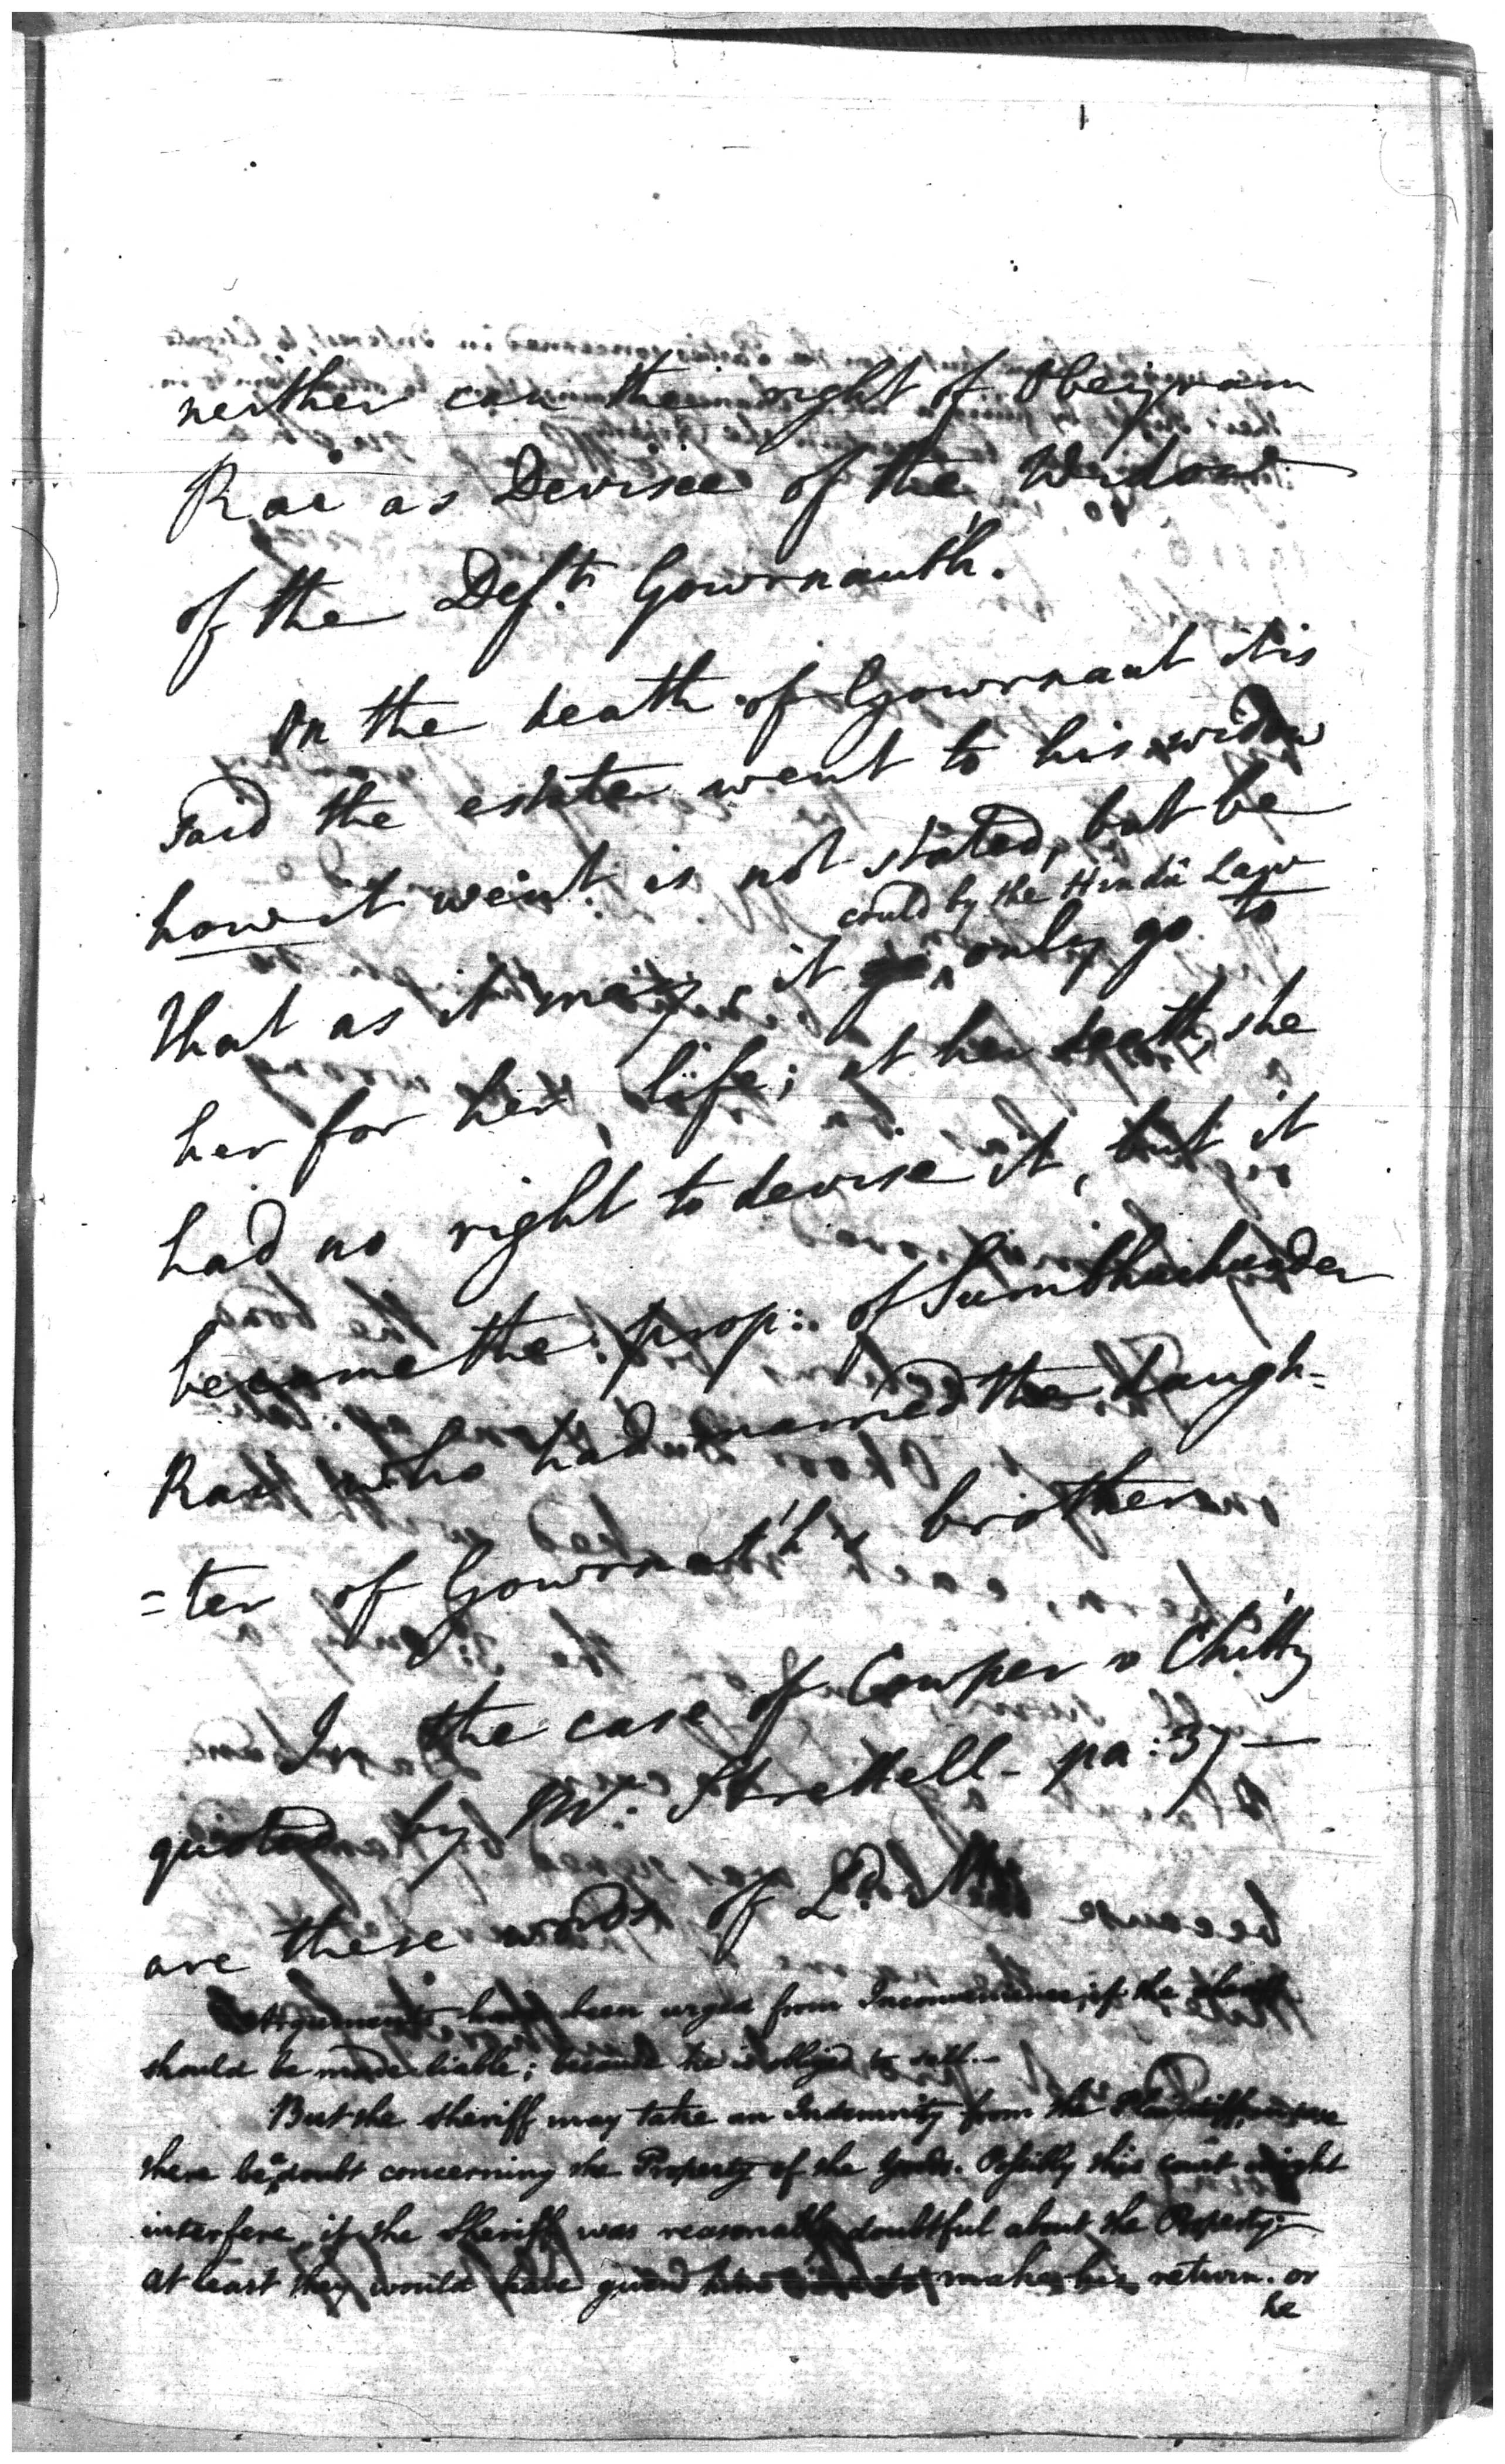 neither can the right of Obeyram
Rae as Devisee of the Widow
of the Deft. Gowrnauth.
On the death of Gowrnaut it is
said the estate went to his widow
how it went is not stated, but be
could by the Hindu Law
that as it may, it only go to
her for her life; at her death she
had no right to devise it, but it
became the prop: of Sumbhuchunder
Rai who had married the daugh=
=ter of Gowrnath's brother
In the case of Cowper v Chitty
quoted by Mr. Strettell - pa: 37 -
are these words of Ld.
Arguments have been urged from Inconvenience, if the Sheriff
should be made liable; because he is obliged to sell. -
But the Sheriff may take an Indemnity from the Plaintiff,
there be a doubt concerning the Property of the Goods. Possibly this court might
interfere, if the Sheriff was reasonably doubtful about the Property:
at least they would have given him make his return. or
he